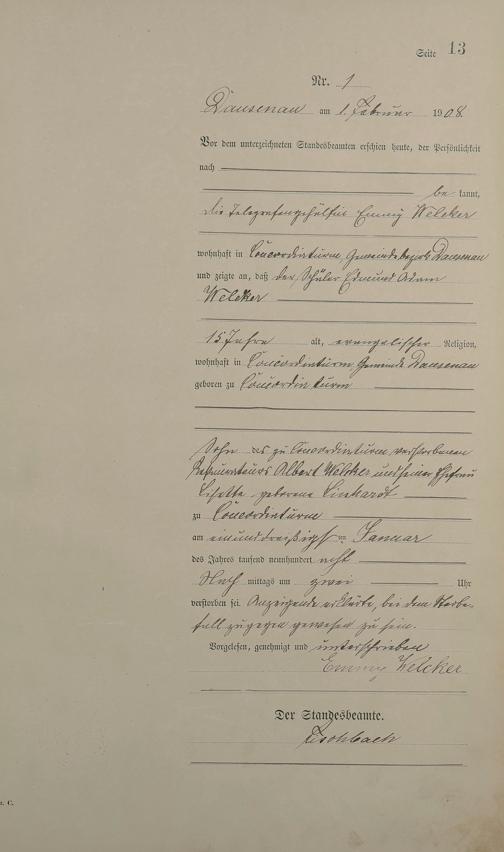 Seite 13
Nr. 1
Dausenau am 1. Februar 1908.
Vor dem unterzeichneten Standesbeamten erschien heute, der Persönlichkeit
nach
be kannt,
die Telegrafengehülfin Emmy Welcker
wohnhaft in Concordiaturm, Gemeindebezirk Dausenau
und zeigte an, daß der Schüler Edmund Adam
Welcker
15 Jahre alt, evangelischer Religion,
wohnhaft in Concordiaturm Gemeinde Dausenau
geboren zu Concordiaturm
Sohn des zu Concordiaturm verstorbenen
Restaurateurs Albert Welcker und seiner Ehefrau
Lisette geborene Linkardt
zu Concordiaturm
am einunddreißigsten Januar
des Jahres tausend neunhundert acht
Nach mittags um zwei Uhr
verstorben sei. Anzeigende erklärte, bei dem Sterbe-
fall zugegen gewesen zu sein.
Vorgelesen, genehmigt und unterschrieben
Emmy Welcker
Der Standesbeamte.
Fischbach
r. C.